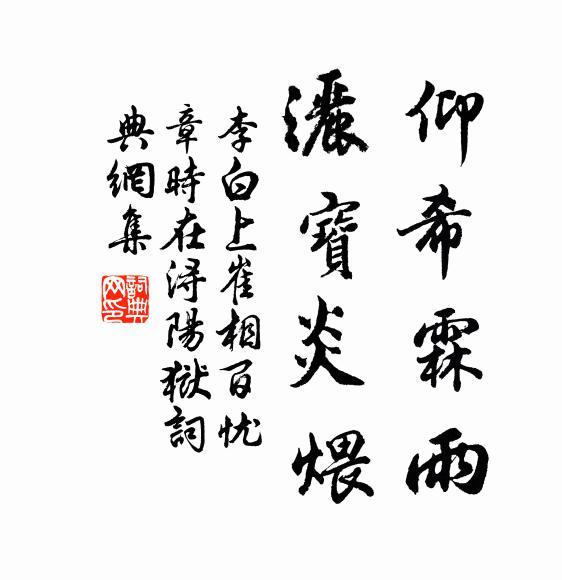 仰希霖雨
灑寶炎煨
李白上崔相百忧
章時在浔陽獄詞
典網集
詞典网印